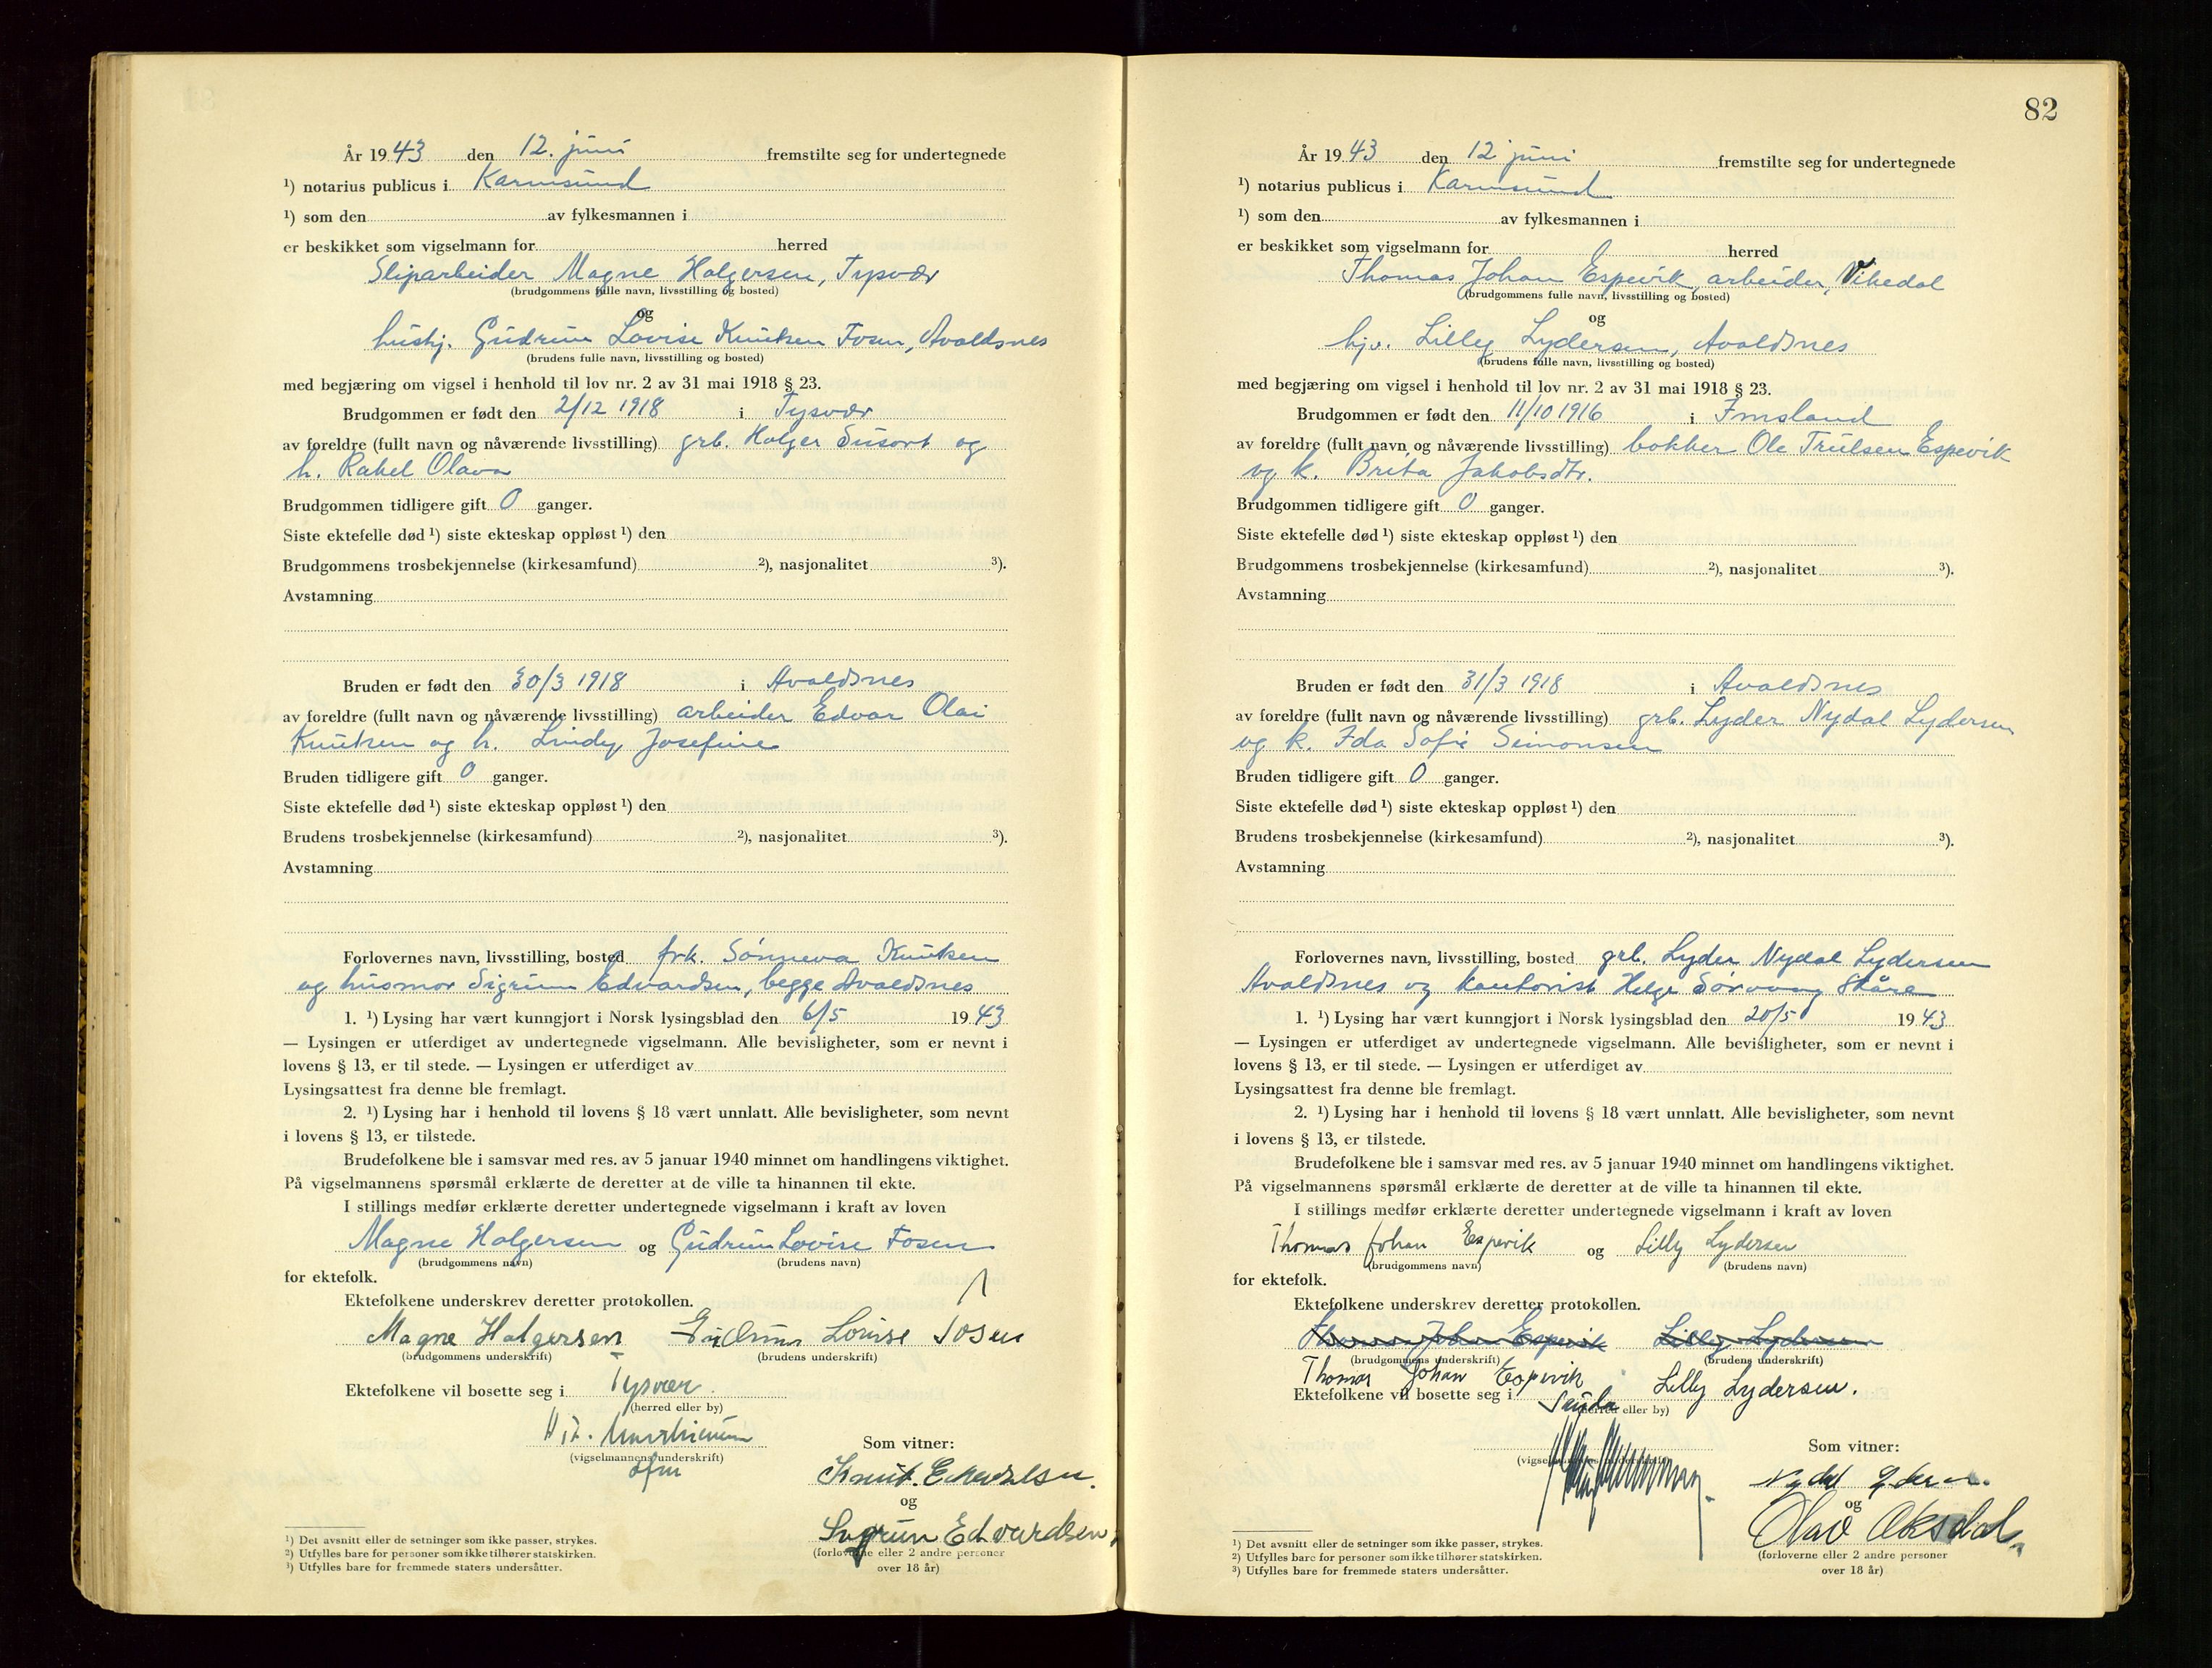 År 1943 den 12. juni fremstilte seg for undertegnede
¹) notarius publicus i Karmsund
¹) som den av fylkesmannen i
er beskikket som vigselmann for herred
Sliparbeider Magne Holgersen, Tysvær
(brudgommens fulle navn, livsstilling og bosted)
og
hushj. Gudrun Lovise Knutsen Fosen, Avaldsnes
(brudens fulle navn, livsstilling og bosted)
med begjæring om vigsel i henhold til lov nr. 2 av 31 mai 1918 § 23.
Brudgommen er født den 2/12 1918 i Tysvær
av foreldre (fullt navn og nåværende livsstilling) grb. Holger Susort og
h. Rakel Olava
Brudgommen tidligere gift 0 ganger.
Siste ektefelle død ¹) siste ekteskap oppløst ¹) den
Brudgommens trosbekjennelse (kirkesamfund) ²), nasjonalitet ³).
Avstamning
Bruden er født den 30/3 1918 i Avaldsnes
av foreldre (fullt navn og nåværende livsstilling) arbeider Edvar Olai
Knutsen og h. Lindy Josefine
Bruden tidligere gift 0 ganger.
Siste ektefelle død ¹) siste ekteskap oppløst ¹) den
Brudens trosbekjennelse (kirkesamfund) ²), nasjonalitet ³).
Avstamning
Forlovernes navn, livsstilling, bosted frk. Sønneva Knutsen
og husmor Sigrun Edvardsen, begge Avaldsnes
1. ¹) Lysing har vært kunngjort i Norsk lysingsblad den 6/5 1943
— Lysingen er utferdiget av undertegnede vigselmann. Alle bevisligheter, som er nevnt i
lovens § 13, er til stede. — Lysingen er utferdiget av
Lysingsattest fra denne ble fremlagt.
2. ¹) Lysing har i henhold til lovens § 18 vært unnlatt. Alle bevisligheter, som nevnt
i lovens § 13, er tilstede.
Brudefolkene ble i samsvar med res. av 5 januar 1940 minnet om handlingens viktighet.
På vigselmannens spørsmål erklærte de deretter at de ville ta hinannen til ekte.
I stillings medfør erklærte deretter undertegnede vigselmann i kraft av loven
Magne Holgersen og Gudrun Lovise Fosen
(brudgommens navn) (brudens navn)
for ektefolk.
Ektefolkene underskrev deretter protokollen.
Magne Holgersen Gudrun Lovise Fosen
(brudgommens underskrift) (brudens underskrift)
Ektefolkene vil bosette seg i Tysvær.
(herred eller by)
(vigselmannens underskrift)
Som vitner:
Knut
og
Sigrun Edvardsen
(forloverne eller 2 andre personer
over 18 år)
¹) Det avsnitt eller de setninger som ikke passer, strykes.
²) Utfylles bare for personer som ikke tilhører statskirken.
³) Utfylles bare for fremmede staters undersåtter.
82
År 1943 den 12 juni fremstilte seg for undertegnede
¹) notarius publicus i Karmsund
¹) som den av fylkesmannen i
er beskikket som vigselmann for herred
Thomas Johan Espevik, arbeider, Vikedal
(brudgommens fulle navn, livsstilling og bosted)
og
hjv. Lilly Lydersen, Avaldsnes
(brudens fulle navn, livsstilling og bosted)
med begjæring om vigsel i henhold til lov nr. 2 av 31 mai 1918 § 23.
Brudgommen er født den 11/10 1916 i Imsland
av foreldre (fullt navn og nåværende livsstilling) bøkker Ole Trulsen Espevik
og k. Brita Jakobsdtr.
Brudgommen tidligere gift 0 ganger.
Siste ektefelle død ¹) siste ekteskap oppløst ¹) den
Brudgommens trosbekjennelse (kirkesamfund) ²), nasjonalitet ³).
Avstamning
Bruden er født den 31/3 1918 i Avaldsnes
av foreldre (fullt navn og nåværende livsstilling) grb. Lyder Nydal Lydersen
og k. Ida Sofie Simonsen
Bruden tidligere gift 0 ganger.
Siste ektefelle død ¹) siste ekteskap oppløst ¹) den
Brudens trosbekjennelse (kirkesamfund) ²), nasjonalitet ³).
Avstamning
Forlovernes navn, livsstilling, bosted grb. Lyder Nydal Lydersen
Avaldsnes og kontorist Helge Sørvaag Skåre
1. ¹) Lysing har vært kunngjort i Norsk lysingsblad den 20/5 1943
— Lysingen er utferdiget av undertegnede vigselmann. Alle bevisligheter, som er nevnt i
lovens § 13, er til stede. — Lysingen er utferdiget av
Lysingsattest fra denne ble fremlagt.
2. ¹) Lysing har i henhold til lovens § 18 vært unnlatt. Alle bevisligheter, som nevnt
i lovens § 13, er tilstede.
Brudefolkene ble i samsvar med res. av 5 januar 1940 minnet om handlingens viktighet.
På vigselmannens spørsmål erklærte de deretter at de ville ta hinannen til ekte.
I stillings medfør erklærte deretter undertegnede vigselmann i kraft av loven
Thomas Johan Espevik og Lilly Lydersen
(brudgommens navn) (brudens navn)
for ektefolk.
Ektefolkene underskrev deretter protokollen.
Thomas Johan Espevik Lilly Lydersen
(brudgommens underskrift) (brudens underskrift)
Thomas Johan Espevik Lilly Lydersen.
Ektefolkene vil bosette seg i Sauda
(herred eller by)
(vigselmannens underskrift)
Som vitner:
Nydal
og
Olav Aksdal
(forloverne eller 2 andre personer
over 18 år)
¹) Det avsnitt eller de setninger som ikke passer, strykes.
²) Utfylles bare for personer som ikke tilhører statskirken.
³) Utfylles bare for fremmede staters undersåtter.